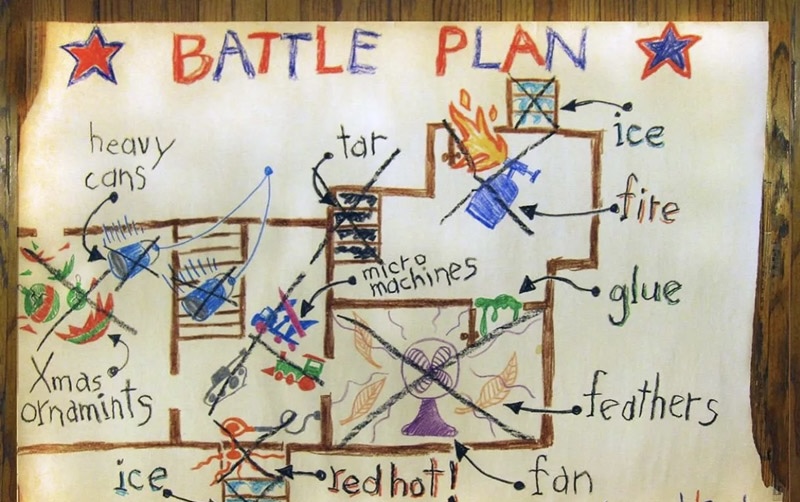 BATTLE PLAN
heavy
cans
tar
ice
fire
micro
machines
glue
Xmas
ornamints
feathers
ice
red hot!
fan